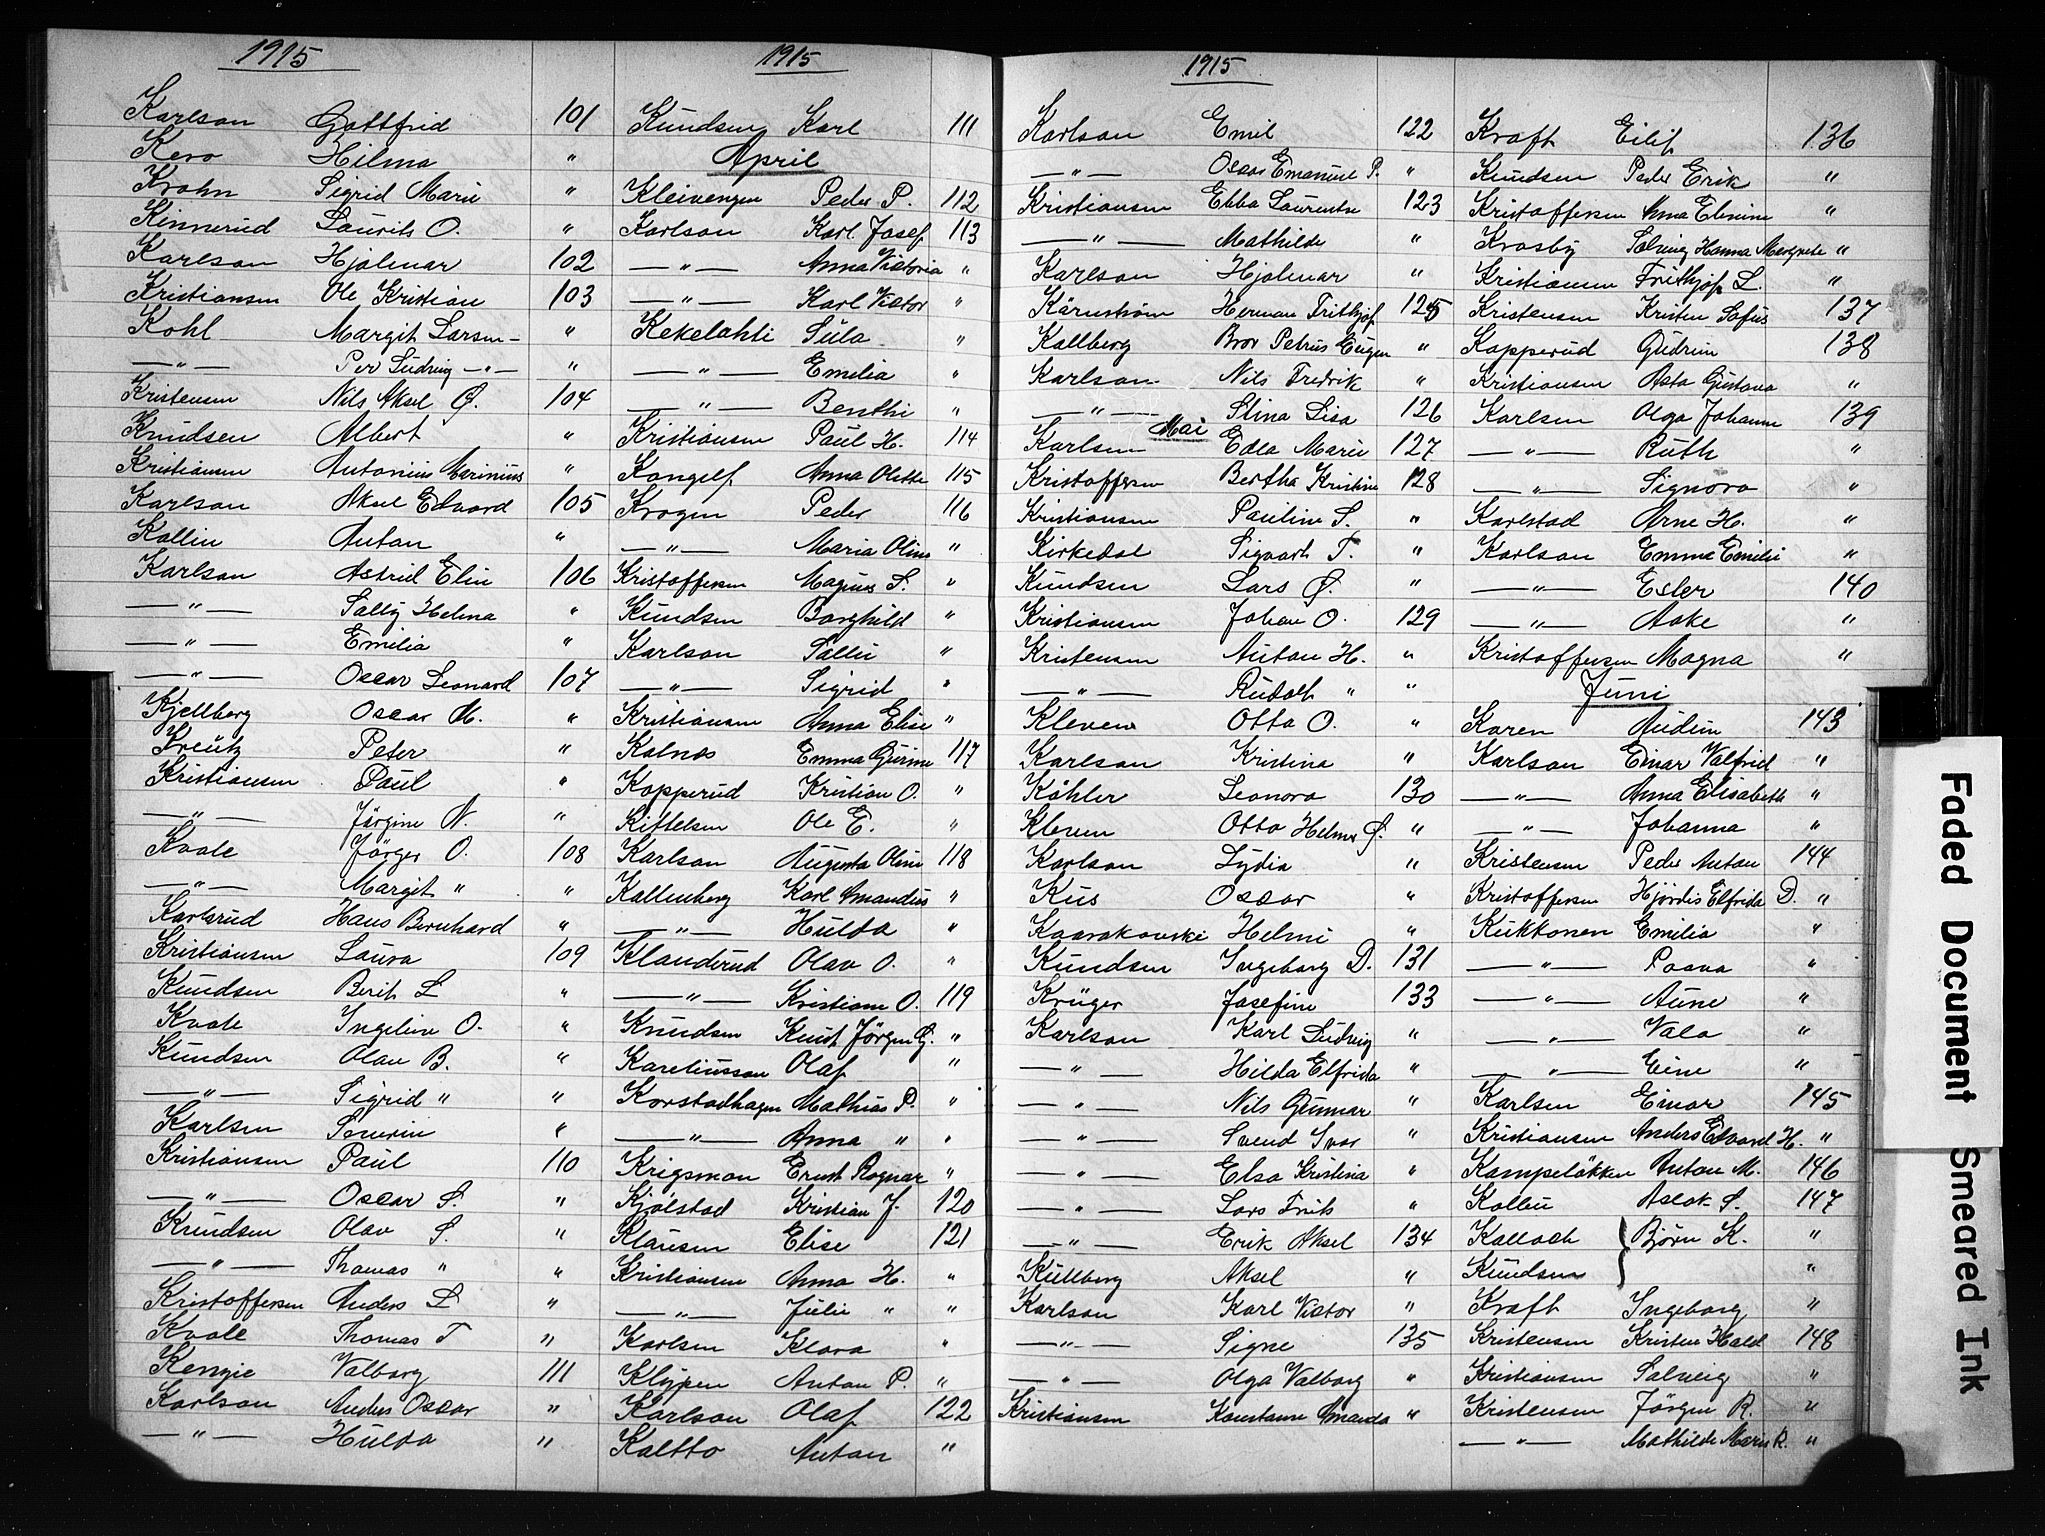 1915
Karlson Gottfrid 101
Kero Hilma "
Krohn Sigrid Marie "
Kinnerud Laurits O. "
Karlson Hjalmar 102
Kristiansen Ole Kristian 103
Kohl Margit Larsen - "
—"— Per Ludvig —"— "
Kristensen Nils Aksel Ø. 104
Knudsen Albert "
Kristiansen Antonius Marinius "
Karlson Aksel Edvard 105
Kallin Anton "
Karlson Astrid Elin 106
—"— Sally Helena "
—"— Emilia "
—"— Oscar Leonard 107
Kjellberg Oscar M. "
Kreutz Peter "
Kristiansen Paul "
—"— Jörgine N. "
Kvale Jörger O. 108
—"— Margit " "
Karlsrud Hans Bernhard "
Kristiansen Laura 109
Knudsen Berit L "
Kvale Ingeline O. "
Knudsen Olav B. "
—"— Sigrid " "
Karlsen Severin "
Kristiansen Paul 110
—"— Oscar S. "
Knudsen Olav S. "
—"— Thomas " "
Kristoffersen Anders L "
Kvale Thomas T "
Kenzie Valborg 111
Karlson Anders Oscar "
—"— Hulda "
1915
Knudsen Karl 111
April
Kleivengen Peder P. 112
Karlson Karl Josef 113
—"— Anna Victoria "
—"— Karl Victor "
Kekelahti Sula "
—"— Emilia "
—"— Benthi "
Kristiansen Paul H. 114
Kongelf Anna Olette 115
Krogen Peder 116
—"— Maria Oline "
Kristoffersen Magnus S. "
Knudsen Borghild "
Karlson Sallie "
—"— Sigrid "
Kristiansen Anna Elise "
Kalnos Emma Gurine 117
Kopperud Kristian O. "
Kittelsen Ole E. "
Karlson Augusta Oline 118
Kallenberg Karl Amandus "
—"— Hulda "
Klanderud Olav O. "
—"— Kristiane O. 119
Knudsen Knut Jörgen G. "
Kareliusson Olaf "
Korstadhagen Mathias P. "
—"— Anna " "
Krigsman Ernst Ragnar "
Kjölstad Kristian J. 120
Klausen Elise 121
Kristiansen Anna H. "
—"— Julie " "
Karlsen Klara "
Kløpen Anton P. "
Karlson Olaf 122
Kaltto Anton "
1915
Karlson Emil 122
—"— Oscar Emanuel P. "
Kristiansen Ebba Laurentse 123
—"— Mathilde "
Karlson Hjalmar "
Kärnström Herman Frithjof 125
Kallberg Bror Petrus Eugen "
Karlson Nils Fredrik "
—"— Stina Lisa 126
Mai
Karlsen Edla Marie 127
Kristoffersen Bertha Kristine 128
Kristiansen Pauline S. "
Kirkedal Sigvart T. "
Knudsen Lars Ø. "
Kristiansen Johan O. 129
Kristensen Anton H. "
—"— Rudolf " "
Kleven Otto O. "
Karlson Kristina "
Köhler Leonora 130
Kleven Otto Helmer Ø. "
Karlson Lydia "
Kus Oscar "
Kaarakovski Helmi "
Knudsen Ingeborg D. 131
Krüger Josefine 133
Karlson Karl Ludvig "
—"— Hilda Elfrida "
—"— Nils Gunnar "
—"— Svend Ivar "
—"— Elsa Kristina "
—"— Lars Frits "
—"— Erik Aksel 134
Kullberg Aksel "
Karlson Karl Victor "
—"— Signe 135
—"— Olga Valborg "
Kristiansen Konstanse Amanda "
Kraft Eilif 136
Knudsen Peder Erik "
Kristoffersen Anna Elenine "
Krosby Solveig Hanna Margrete "
Kristiansen Frithjof L. "
Kristensen Kristen Sofus 137
Kopperud Gudrun 138
Kristiansen Asta Gustava "
Karlsen Olga Johanne 139
—"— Ruth "
—"— Signora "
Karlstad Arne H. "
Karlson Emma Emilie "
—"— Ester 140
—"— Aake "
Kristoffersen Magna "
Juni
Karen Audun 143
Karlson Einar Valfrid "
—"— Anna Elisabeth "
—"— Johanna "
Kristensen Peder Anton 144
Kristoffersen Hjördis Elfrida D. "
Kukkonen Emilia "
—"— Paava "
—"— Aune "
—"— Valo "
—"— Eine "
Karlsen Einar 145
Kristiansen Anders Edvard H. "
Kampeløkken Anton M. 146
Kallu Aslak S. 147
Kallach } Bjørn K. "
Knudsen "
Kraft Ingeborg "
Kristensen Kristen Hald 148
Kristiansen Solveig "
Kristensen Jörgen R. "
—"— Mathilde Marie R. "
Faded Document Smeared Ink